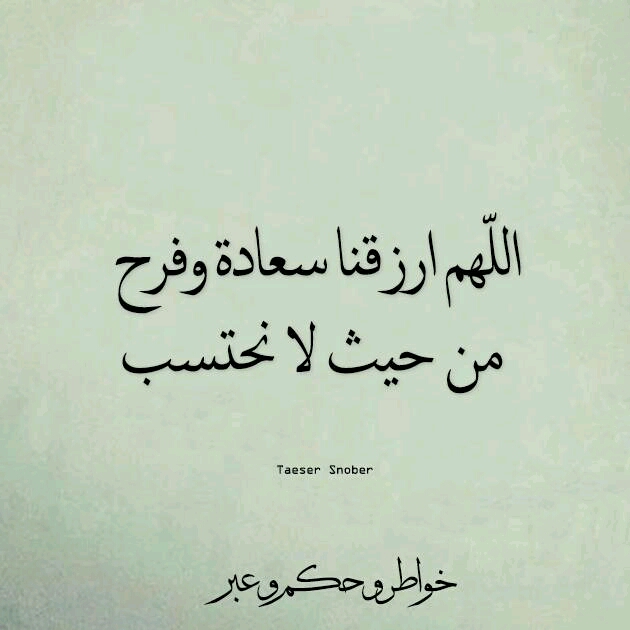 اللّهم ارزقنا سعادة وفرح
من حيث لا نحتسب
Taeser Snober
خواطر وحكم وعبر